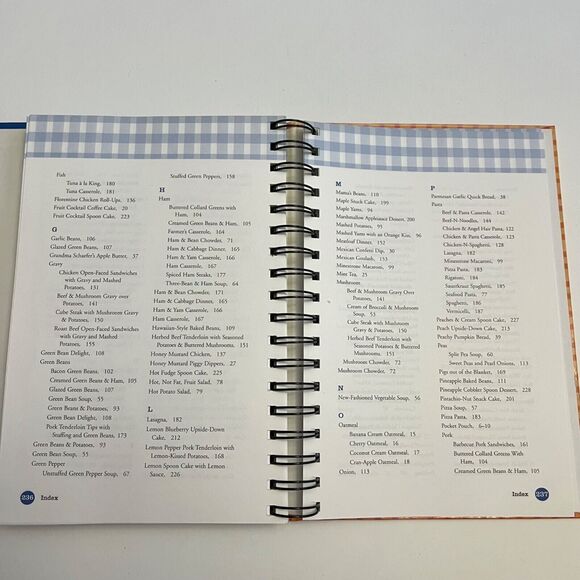 Fish
Tuna à la King, 180
Tuna Casserole, 181
Florentine Chicken Roll-Ups, 136
Fruit Cocktail Coffee Cake, 20
Fruit Cocktail Spoon Cake, 223
G
Garlic Beans, 106
Glazed Green Beans, 107
Grandma Schaefer's Apple Butter, 37
Gravy
Chicken Open-Faced Sandwiches
with Gravy and Mashed
Potatoes, 131
Beef & Mushroom Gravy over
Potatoes, 141
Cube Steak with Mushroom Gravy
& Potatoes, 150
Roast Beef Open-Faced Sandwiches
with Gravy and Mashed
Potatoes, 155
Green Bean Delight, 108
Green Beans
Bacon Green Beans, 102
Creamed Green Beans & Ham, 105
Glazed Green Beans, 107
Green Bean Soup, 55
Green Beans & Potatoes, 93
Green Bean Delight, 108
Pork Tenderloin Tips with
Stuffing and Green Beans, 173
Green Beans & Potatoes, 93
Green Bean Soup, 55
Green Pepper
Unstuffed Green Pepper Soup, 67
Stuffed Green Peppers, 158
H
Ham
Buttered Collard Greens with
Ham, 104
Creamed Green Beans & Ham, 105
Farmer's Casserole, 164
Ham & Bean Chowder, 71
Ham & Cabbage Dinner, 165
Ham & Yam Casserole, 166
Ham Casserole, 167
Spiced Ham Steaks, 177
Three-Bean & Ham Soup, 64
Ham & Bean Chowder, 71
Ham & Cabbage Dinner, 165
Ham & Yam Casserole, 166
Ham Casserole, 167
Hawaiian-Style Baked Beans, 109
Herbed Beef Tenderloin with Seasoned
Potatoes & Buttered Mushrooms, 151
Honey Mustard Chicken, 137
Honey Mustard Piggy Dippers, 27
Hot Fudge Spoon Cake, 225
Hot, Not Fat, Fruit Salad, 78
Hot Potato Salad, 79
L
Lasagna, 182
Lemon Blueberry Upside-Down
Cake, 212
Lemon Pepper Pork Tenderloin with
Lemon-Kissed Potatoes, 168
Lemon Spoon Cake with Lemon
Sauce, 226
236 Index
M
Mama's Beans, 110
Maple Snack Cake, 199
Maple Yams, 94
Marshmallow Applesauce Dessert, 200
Mashed Potatoes, 95
Mashed Yams with an Orange Kiss, 96
Meatloaf Dinner, 152
Mexican Confetti Dip, 30
Mexican Goulash, 153
Minestrone Macaroni, 99
Mint Tea, 25
Mushroom
Beef & Mushroom Gravy Over
Potatoes, 141
Cream of Broccoli & Mushroom
Soup, 53
Cube Steak with Mushroom
Gravy & Potatoes, 150
Herbed Beef Tenderloin with
Seasoned Potatoes & Buttered
Mushrooms, 151
Mushroom Chowder, 72
Mushroom Chowder, 72
N
New-Fashioned Vegetable Soup, 56
O
Oatmeal
Banana Cream Oatmeal, 15
Cherry Oatmeal, 16
Coconut Cream Oatmeal, 17
Cran-Apple Oatmeal, 18
Onion, 113
P
Parmesan Garlic Quick Bread, 38
Pasta
Beef & Pasta Casserole, 142
Beef-N-Noodles, 144
Chicken & Angel Hair Pasta, 122
Chicken & Pasta Casserole, 123
Chicken-N-Spaghetti, 128
Lasagna, 182
Minestrone Macaroni, 99
Pizza Pasta, 183
Rigatoni, 184
Sauerkraut Spaghetti, 185
Seafood Pasta, 77
Spaghetti, 186
Vermicelli, 187
Peaches & Cream Spoon Cake, 227
Peach Upside-Down Cake, 213
Peachy Pumpkin Bread, 39
Peas
Split Pea Soup, 60
Sweet Peas and Pearl Onions, 113
Pigs out of the Blanket, 169
Pineapple Baked Beans, 111
Pineapple Cobbler Spoon Dessert, 228
Pistachio-Nut Snack Cake, 201
Pizza Soup, 57
Pizza Pasta, 183
Pocket Pouch, 6–10
Pork
Barbecue Pork Sandwiches, 161
Buttered Collard Greens With
Ham, 104
Creamed Green Beans & Ham, 105
Index 237